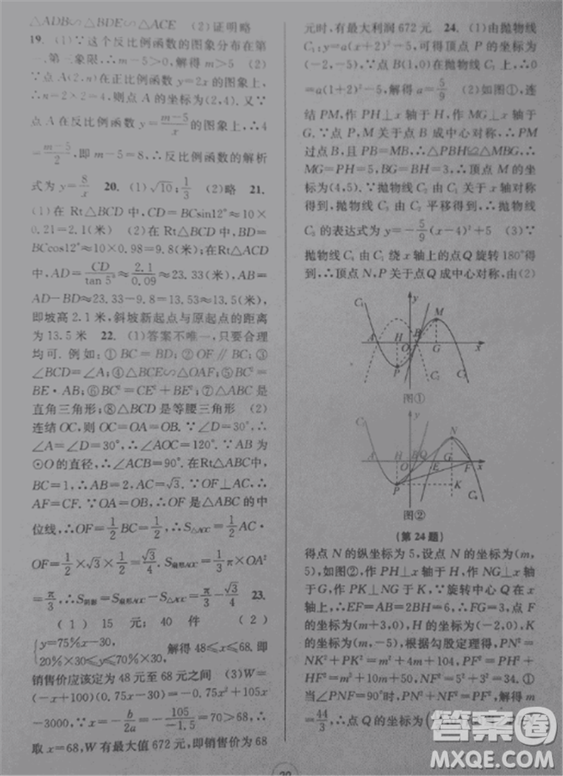 △ADB∽△BDE∽△ACE　(2)证明略
19. (1)∵这个反比例函数的图象分布在第
一、第三象限,∴m-5>0,解得 m>5　(2)
∵点 A(2,n)在正比例函数 y=2x 的图象上,
∴n=2×2=4,则点 A 的坐标为(2,4).又∵
点 A 在反比例函数 y=(m-5)/x 的图象上,∴4
=(m-5)/2,即 m-5=8,∴反比例函数的解析
式为 y=8/x　20. (1)√10;1/3　(2)略　21.
(1)在 Rt△BCD 中,CD=BCsin12°≈10×
0.21=2.1(米)　(2)在 Rt△BCD 中,BD=
BCcos12°≈10×0.98=9.8(米);在 Rt△ACD
中,AD=CD/tan5°≈2.1/0.09≈23.33(米),∴AB=
AD-BD≈23.33-9.8=13.53≈13.5(米),
即坡高 2.1米,斜坡新起点与原起点的距离
为 13.5 米　22. (1)答案不唯一,只要合理
均可.例如:①BC=BD;②OF∥BC;③
∠BCD=∠A;④△BCE∽△OAF;⑤BC²=
BE·AB;⑥BC²=CE²+BE²;⑦△ABC是
直角三角形;⑧△BCD是等腰三角形　(2)
连结 OC,则 OC=OA=OB.∵∠D=30°,∴
∠A=∠D=30°,∴∠AOC=120°.∵AB 为
⊙O 的直径,∴∠ACB=90°.在 Rt△ABC中,
BC=1,∴AB=2,AC=√3.∵OF⊥AC,∴
AF=CF.∵OA=OB,∴OF 是△ABC 的中
位线,∴OF=1/2BC=1/2,∴S△AOC=1/2AC·
OF=1/2×√3×1/2=√3/4.∵S扇形AOC=1/3π×OA²
=π/3,∴S阴影=S扇形AOC-S△AOC=π/3-√3/4　23.
(1)15 元;40 件　(2)
{y=75%x-30,
20%×30≤y≤80%×30, 解得 48≤x≤68.即
销售价应该定为 48 元至 68 元之间　(3)W=
(-x+100)(0.75x-30)=-0.75x²+105x
-3000,∵x=-b/2a=-105/-1.5=70>68,∴
取 x=68,W 有最大值 672 元,即销售价为 68
元时,有最大利润 672 元　24. (1)由抛物线
C₁:y=a(x+2)²-5,可得顶点 P 的坐标为
(-2,-5).∵点 B(1,0)在抛物线 C₁ 上,∴0
=a(1+2)²-5,解得 a=5/9　(2)如图①,连
结 PM,作 PH⊥x 轴于 H,作 MG⊥x 轴于
G.∵点 P、M 关于点 B 成中心对称,∴PM
过点 B,且 PB=MB,∴△PBH≌△MBG,∴
MG=PH=5,BG=BH=3,∴顶点 M 的坐
标为(4,5).∵抛物线 C₂ 由 C₁ 关于 x 轴对称
得到,抛物线 C₃ 由 C₂ 平移得到,∴抛物线
C₃ 的表达式为 y=-5/9(x-4)²+5　(3)∵
抛物线 C₄ 由 C₁ 绕 x 轴上的点 Q 旋转 180°得
到,∴顶点 N、P 关于点 Q 成中心对称,由(2)
图①
图②
(第 24 题)
得点 N 的纵坐标为 5,设点 N 的坐标为(m,
5),如图②,作 PH⊥x 轴于 H,作 NG⊥x 轴
于 G,作 PK⊥NG 于 K.∵旋转中心 Q 在 x
轴上,∴EF=AB=2BH=6,∴FG=3,点 F
坐标为(m+3,0),H 坐标为(-2,0),K 坐标
为(m,-5),根据勾股定理,得 PN²=
NK²+PK²=m²+4m+104,PF²=PH²+
HF²=m²+10m+50,NF²=5²+3²=34.①
当∠PNF=90°时,PN²+NF²=PF²,解得 m=
44/3,∴点 Q 的坐标为
29
答案圈
MXQE.COM